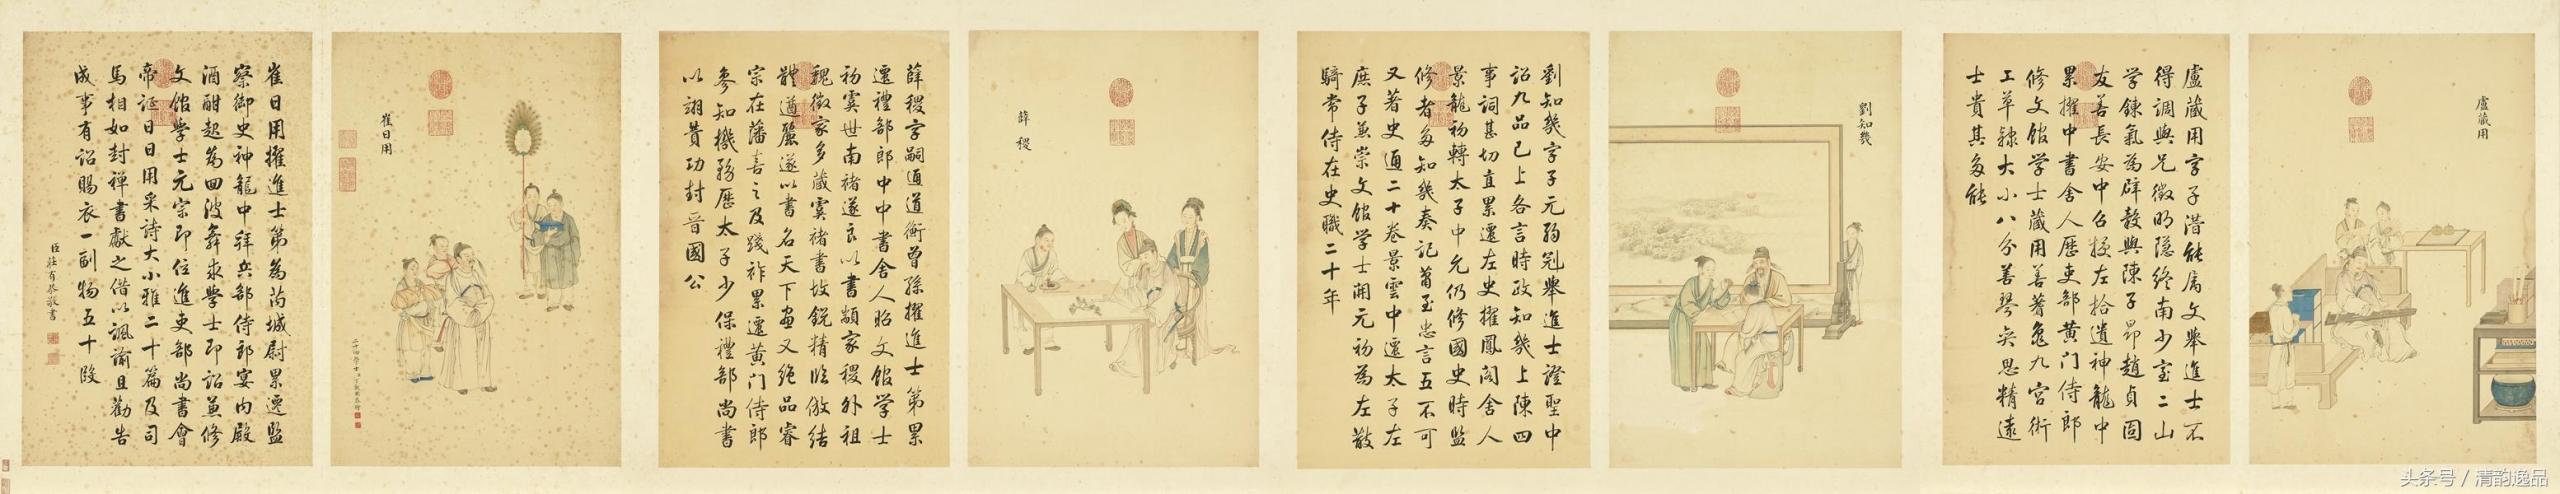 盧藏用
盧藏用字子潛能属文舉進士不
得調與兄徵明隱終南少室二山
學鍊氣為辟穀與陳子昂趙貞固
友善長安中召授左拾遺神龍中
累擢中書舍人歷吏部黄门侍郎
修文館学士藏用善蓍龜九宮術
工草隸大小八分善琴奕思精遠
士貴其多能
劉知幾
劉知幾字子元弱冠舉進士證聖中
詔九品已上各言時政知幾上陳四
事詞甚切直累遷左史擢鳳閣舍人
景龍初轉太子中允仍修國史時監
修者多知幾奏記蕭至忠言五不可
又著史通二十卷景雲中遷太子左
庶子兼崇文館学士開元初為左散
騎常侍在史職二十年
薛稷
薛稷字嗣通道衡曾孫擢進士第累
遷禮部郎中中書舍人昭文館学士
初虞世南褚遂良以書顓家稷外祖
魏徵家多藏虞褚書故銳精臨倣結
體遒麗遂以書名天下画又絕品睿
宗在藩喜之及踐祚累遷黄门侍郎
參知機務歷太子少保禮部尚書
以翊贊功封晉國公
崔日用
崔日用擢進士第為芮城尉累遷監
察御史神龍中拜兵部侍郎宴内殿
酒酣起為回波舞求學士即詔兼修
文館学士元宗即位進吏部尚書會
帝诞日日用采詩大小雅二十篇及司
馬相如封禅書獻之借以諷諭且勸告
成事有詔賜衣一副物五十段
臣莊有恭敬書
头条号 / 清韵逸品